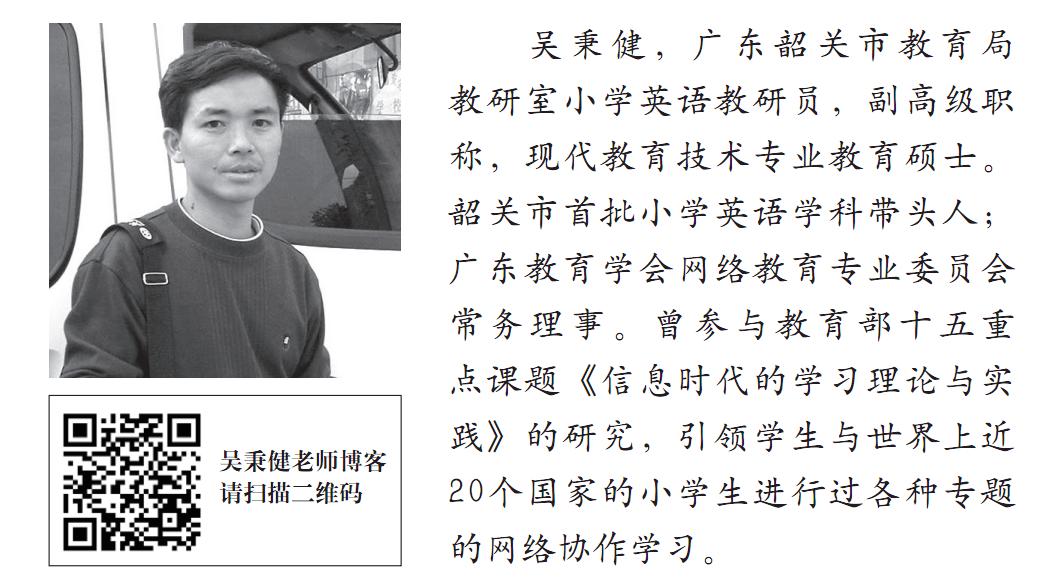 吴秉健，广东韶关市教育局
教研室小学英语教研员，副高级职
称，现代教育技术专业教育硕士。
韶关市首批小学英语学科带头人；
广东教育学会网络教育专业委员会
常务理事。曾参与教育部十五重
点课题《信息时代的学习理论与实
践》的研究，引领学生与世界上近
20个国家的小学生进行过各种专题
的网络协作学习。
吴秉健老师博客
请扫描二维码